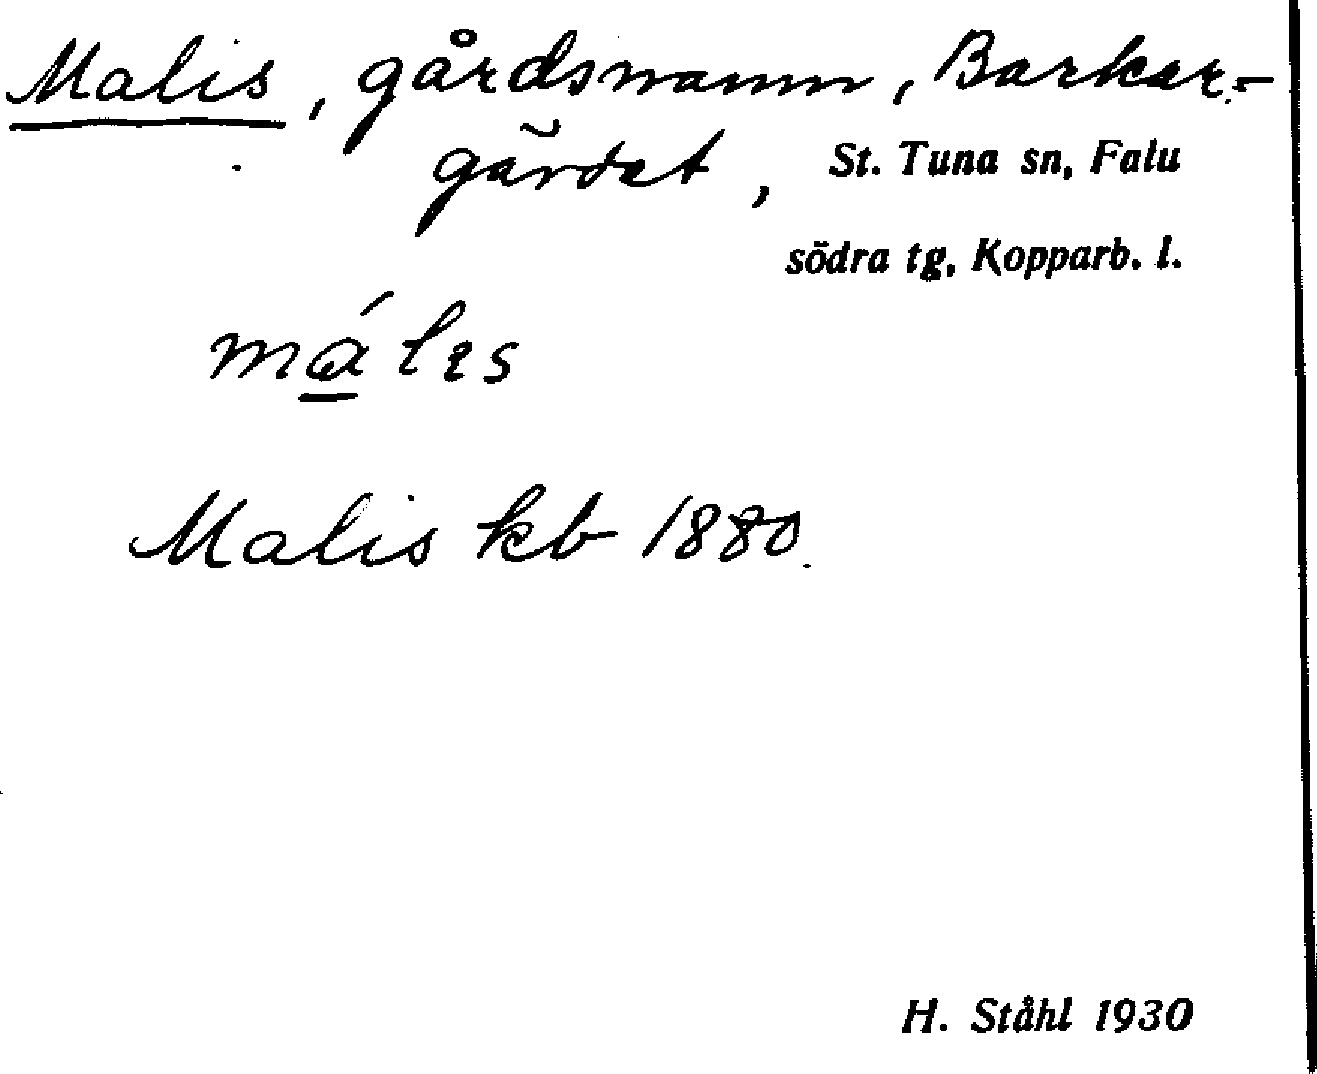 Malis, gårdsnamn, Barkar-
gärdet, St. Tuna sn, Falu
södra tg, Kopparb. l.
má̱lıs
Malis kb 1880.
H. Ståhl 1930